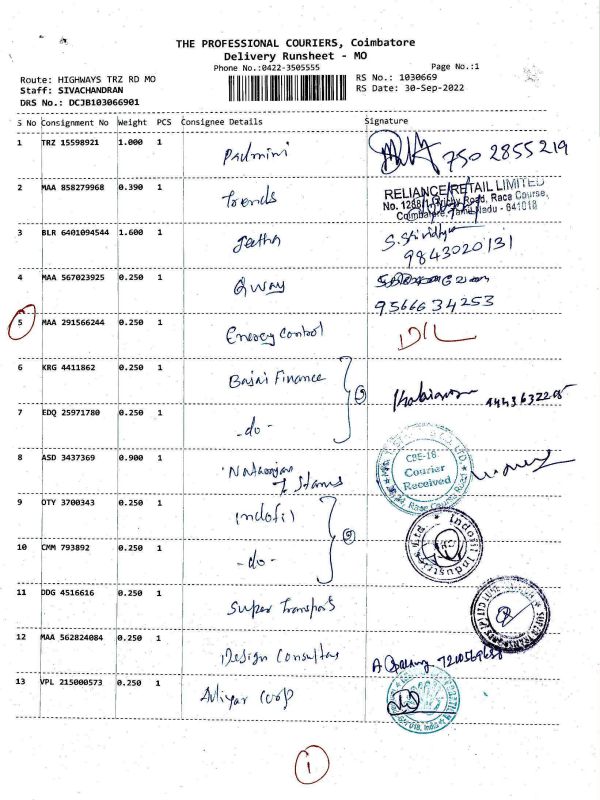 THE PROFESSIONAL COURIERS, Coimbatore
Delivery Runsheet - MO
Phone No.:0422-3505555
Page No.:1
Route: HIGHWAYS TRZ RD MO
RS No.: 1030669
Staff: SIVACHANDRAN
RS Date: 30-Sep-2022
DRS No.: DCJB103066901
S No Consignment No Weight PCS Consignee Details Signature
1 TRZ 15598921 1.000 1 Padmini 750 2855219
2 MAA 858279968 0.390 1 Trends
RELIANCE RETAIL LIMITED
No. 1288/1, Trichy Road, Race Course,
Coimbatore, Tamil Nadu - 641018
3 BLR 6401094544 1.600 1 Geetha S. Srividhya
9843020131
4 MAA 567023925 0.250 1 Qway
9566634253
5 MAA 291566244 0.250 1 Energy Control D/L
6 KRG 4411862 0.250 1 Bajaj Finance
7 EDQ 25971780 0.250 1 -do- 2
8 ASD 3437369 0.900 1 Natarajan
CBE-18
Courier
Received
Race Course Road
9 OTY 3700343 0.250 1 indofil
10 CMM 793892 0.250 1 -do- 2
Indofil Industries Ltd
11 DDG 4516616 1 Super Transports
12 MAA 562824084 0.250 1 Design Consultas
13 VPL 215000573 0.250 1 Aliyar Corp
1